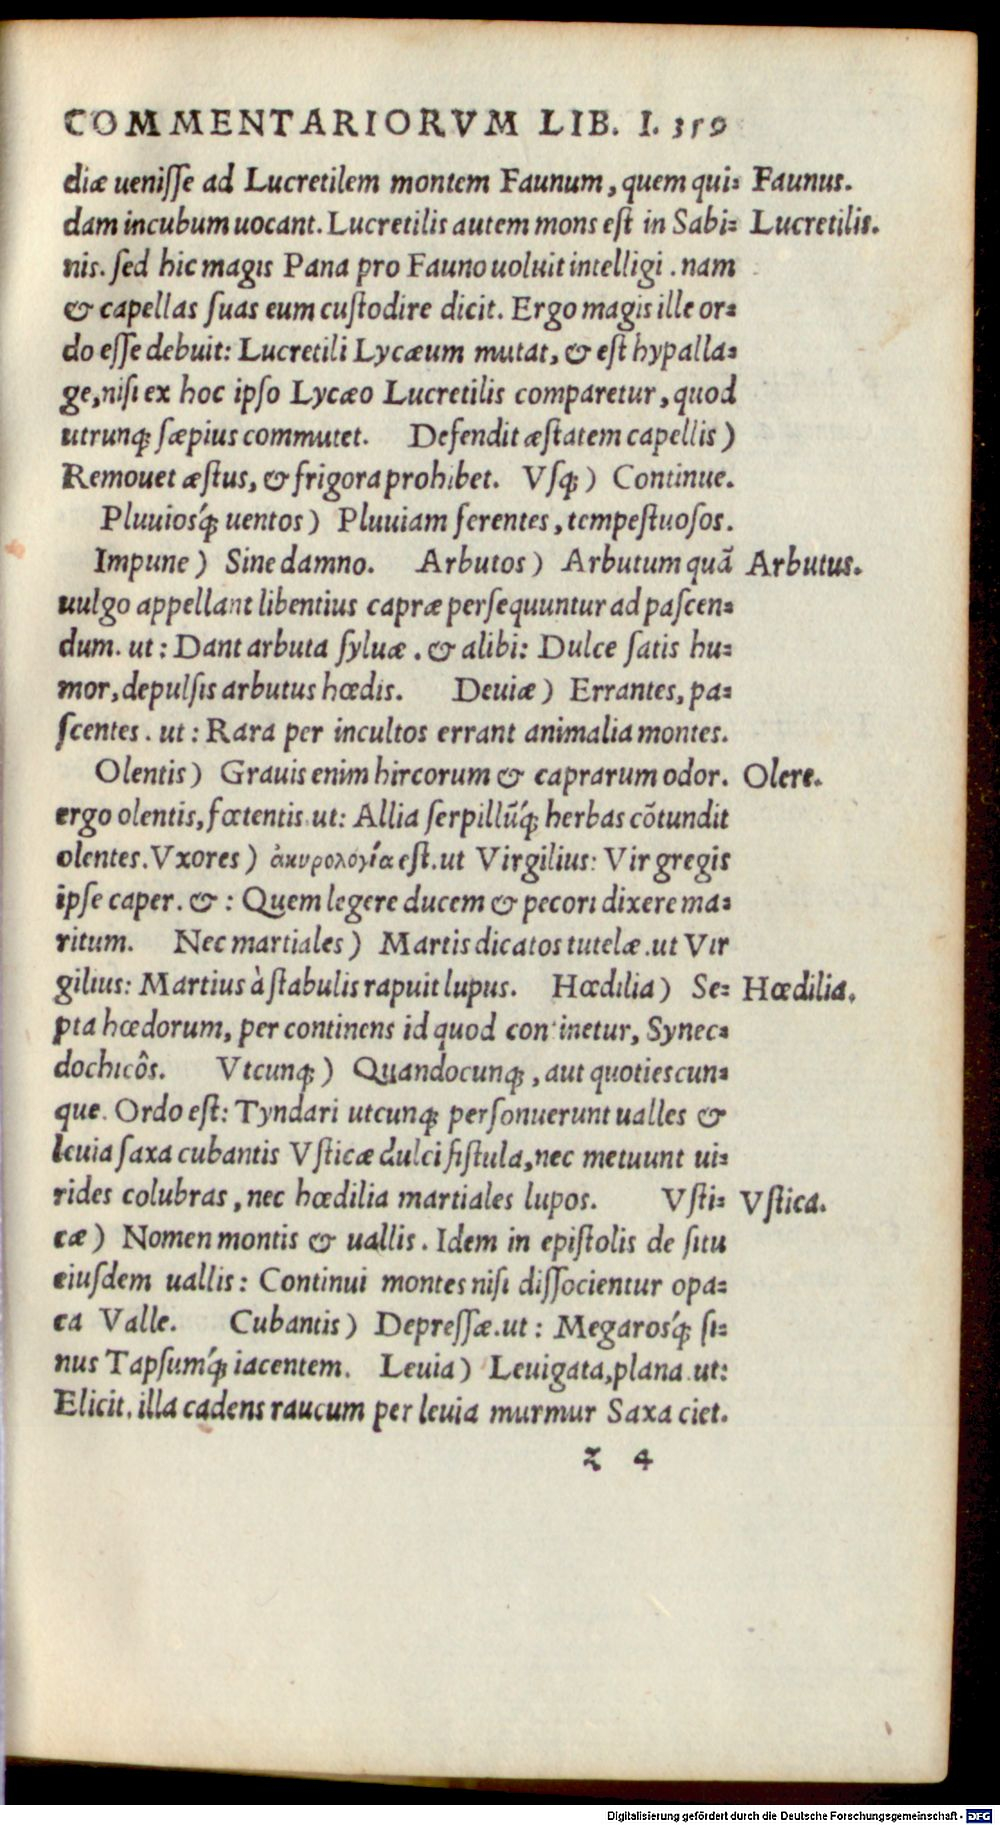 COMMENTARIORVM LIB. I. 359
diæ ueniſſe ad Lucretilem montem Faunum, quem qui= Faunus.
dam incubum uocant. Lucretilis autem mons eſt in Sabi= Lucretilis.
nis. ſed hic magis Pana pro Fauno uoluit intelligi. nam
& capellas ſuas eum cuſtodire dicit. Ergo magis ille or=
do eſſe debuit: Lucretili Lycæum mutat, & eſt hypalla=
ge, niſi ex hoc ipſo Lycæo Lucretilis comparetur, quod
utrunq; ſæpius commutet. Defendit æſtatem capellis)
Remouet æſtus, & frigora prohibet. Vſq;) Continue.
Pluuiosq́; uentos) Pluuiam ferentes, tempeſtuoſos.
Impune) Sine damno. Arbutos) Arbutum quã Arbutus.
uulgo appellant libentius capræ perſequuntur ad paſcen=
dum. ut: Dant arbuta ſyluæ. & alibi: Dulce ſatis hu=
mor, depulſis arbutus hœdis. Deuiæ) Errantes, pa=
ſcentes. ut: Rara per incultos errant animalia montes.
Olentis) Grauis enim hircorum & caprarum odor. Olere.
ergo olentis, fœtentis. ut: Allia ſerpillũq́; herbas cõtundit
olentes. Vxores) ἀκυρολογία eſt. ut Virgilius: Vir gregis
ipſe caper. &: Quem legere ducem & pecori dixere ma=
ritum. Nec martiales) Martis dicatos tutelæ. ut Vir
gilius: Martius à ſtabulis rapuit lupus. Hœdilia) Se= Hœdilia.
pta hœdorum, per continens id quod continetur, Synec=
dochicôs. Vtcunq;) Quandocunq;, aut quotiescun=
que. Ordo eſt: Tyndari utcunq; perſonuerunt ualles &
leuia ſaxa cubantis Vſticæ dulci fiſtula, nec metuunt ui=
rides colubras, nec hœdilia martiales lupos. Vſti= Vſtica.
cæ) Nomen montis & uallis. Idem in epiſtolis de ſitu
eiuſdem uallis: Continui montes niſi diſſocientur opa=
ca Valle. Cubantis) Depreſſæ. ut: Megarosq́; ſi=
nus Tapſumq́; iacentem. Leuia) Leuigata, plana. ut:
Elicit. illa cadens raucum per leuia murmur Saxa ciet.
z 4
Digitalisierung gefördert durch die Deutsche Forschungsgemeinschaft - DFG